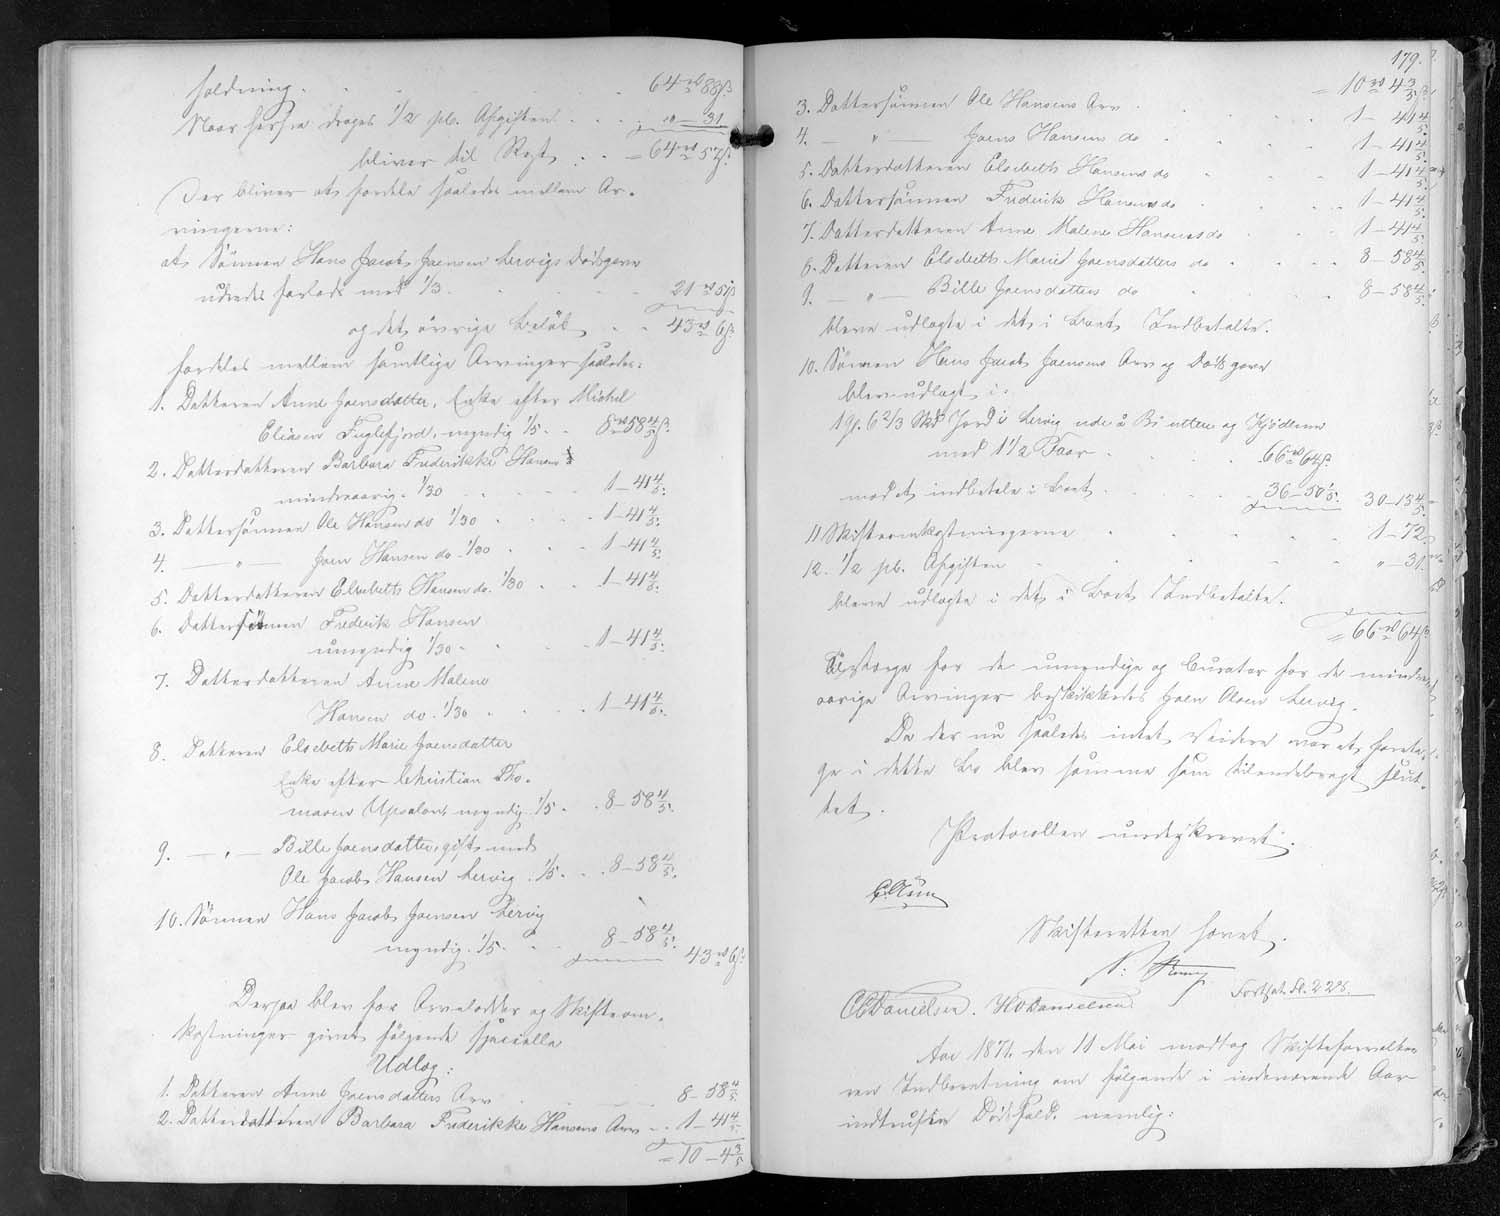 holdning . . . 64 rd 88 ß
Naar herfra drages 1/2 pC. Afgiften . . . " — 31
bliver til Rest . . = 64 rd 57 ß.
Der bliver at fordele saaledes mellem Ar-
vingerne:
at Sönnen Hans Jacob Joensen Lervigs Dödsgave
udredes forlods med 1/3 . . . 21 rd 51 ß
og det övrige Belöb . . . 43 rd 6 ß.
fordeles mellem samtlige Arvinger saaledes:
1. Datteren Anne Joensdatter, Enke efter Michel
Eliasen Fuglefjord, myndig 1/5 . . 8 rd 58 4/5 ß.
2. Datterdatteren Barbara Frederikke Hansen
mindreaarig. 1/30 . . . 1 — 41 4/5.
3. Dattersönnen Ole Hansen do 1/30 . . . 1 — 41 4/5.
4. — " — Joen Hansen do. 1/30 . . . 1 — 41 4/5.
5. Datterdatteren Elsebeth Hansen do. 1/30 . . 1 — 41 4/5.
6. Dattersönnen Frederik Hansen
umyndig 1/30 . . . 1 — 41 4/5.
7. Datterdatteren Anne Malene
Hansen do. 1/30 . . . 1 — 41 4/5.
8. Datteren Elsebeth Marie Joensdatter
Enke efter Christian Tho-
masen Upsalon, myndig 1/5 . . 8 — 58 4/5.
9. — " — Bille Joensdatter, gift med
Ole Jacob Hansen Lervig . 1/5 . . 8 — 58 4/5.
10. Sönnen Hans Jacob Joensen Lervig
myndig. 1/5 . . . 8 — 58 4/5. 43 rd 6 ß.
Derpaa blev for Arvelodder og Skifteom-
kostninger givet følgende specielle
Udlæg:
1. Datteren Anne Joensdatters Arv . . . 8 — 58 4/5.
2. Datterdatteren Barbara Frederikke Hansens Arv . . 1 — 41 4/5.
= 10 — 4 3/5
179.
= 10 rd 4 3/5 ß.
3. Dattersönnen Ole Hansens Arv . . . 1 — 41 4/5.
4. — " — Joens Hansens do . . . 1 — 41 4/5.
5. Datterdatteren Elsebeth Hansens do . . . 1 — 41 4/5.
6. Dattersönnen Frederik Hansens do . . . 1 — 41 4/5.
7. Datterdatteren Anne Malene Hansens do . . . 1 — 41 4/5.
8. Datteren Elsebeth Marie Joensdatters do . . . 8 — 58 4/5.
9. — " — Bille Joensdatters do . . . 8 — 58 4/5.
bleve udlagte i det i Boet Indbetalte.
10. Sönnen Hans Jacob Joensens Arv og Dödsgave
blev udlagt i:
19 6 2/3 Jord i Lervig og
med 1 1/2 Faar . . . 66 rd 64 ß.
mod at indbetale i Boet . . . 36 — 50 1/5. 30 — 13 4/5.
11 Skifteomkostningerne . . . 1 — 72.
12. 1/2 pC. Afgiften . . . " — 31.
bleve udlagte i det i Boet Indbetalte.
= 66 rd 64 ß
Til Værge for de umyndige og Curator for de mindre-
aarige Arvinger beskikkedes Joen Olsen Lervig.
Da der nu saaledes intet videre var at foreta-
ge i dette Bo blev samme som tilendebragt slut-
tet.
Protocollen underskrevet.
Skifteretten hævet.
C C Danielsen. H O Danielsen
Fortsat. fol. 228.
Aar 1871 den 11 Mai modtog Skifteforvalte-
ren Indberetning om følgende i indeværende Aar
indtrufne Dödsfald. nemlig: